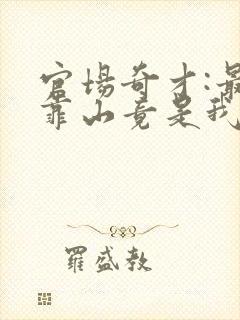 官场奇才:最
靠山竟是我
羅盛教